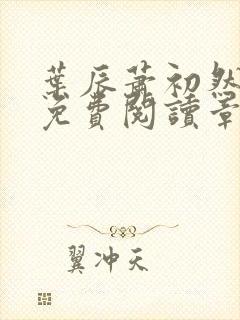 葉辰蕭初然
免費閱讀章
翼冲天